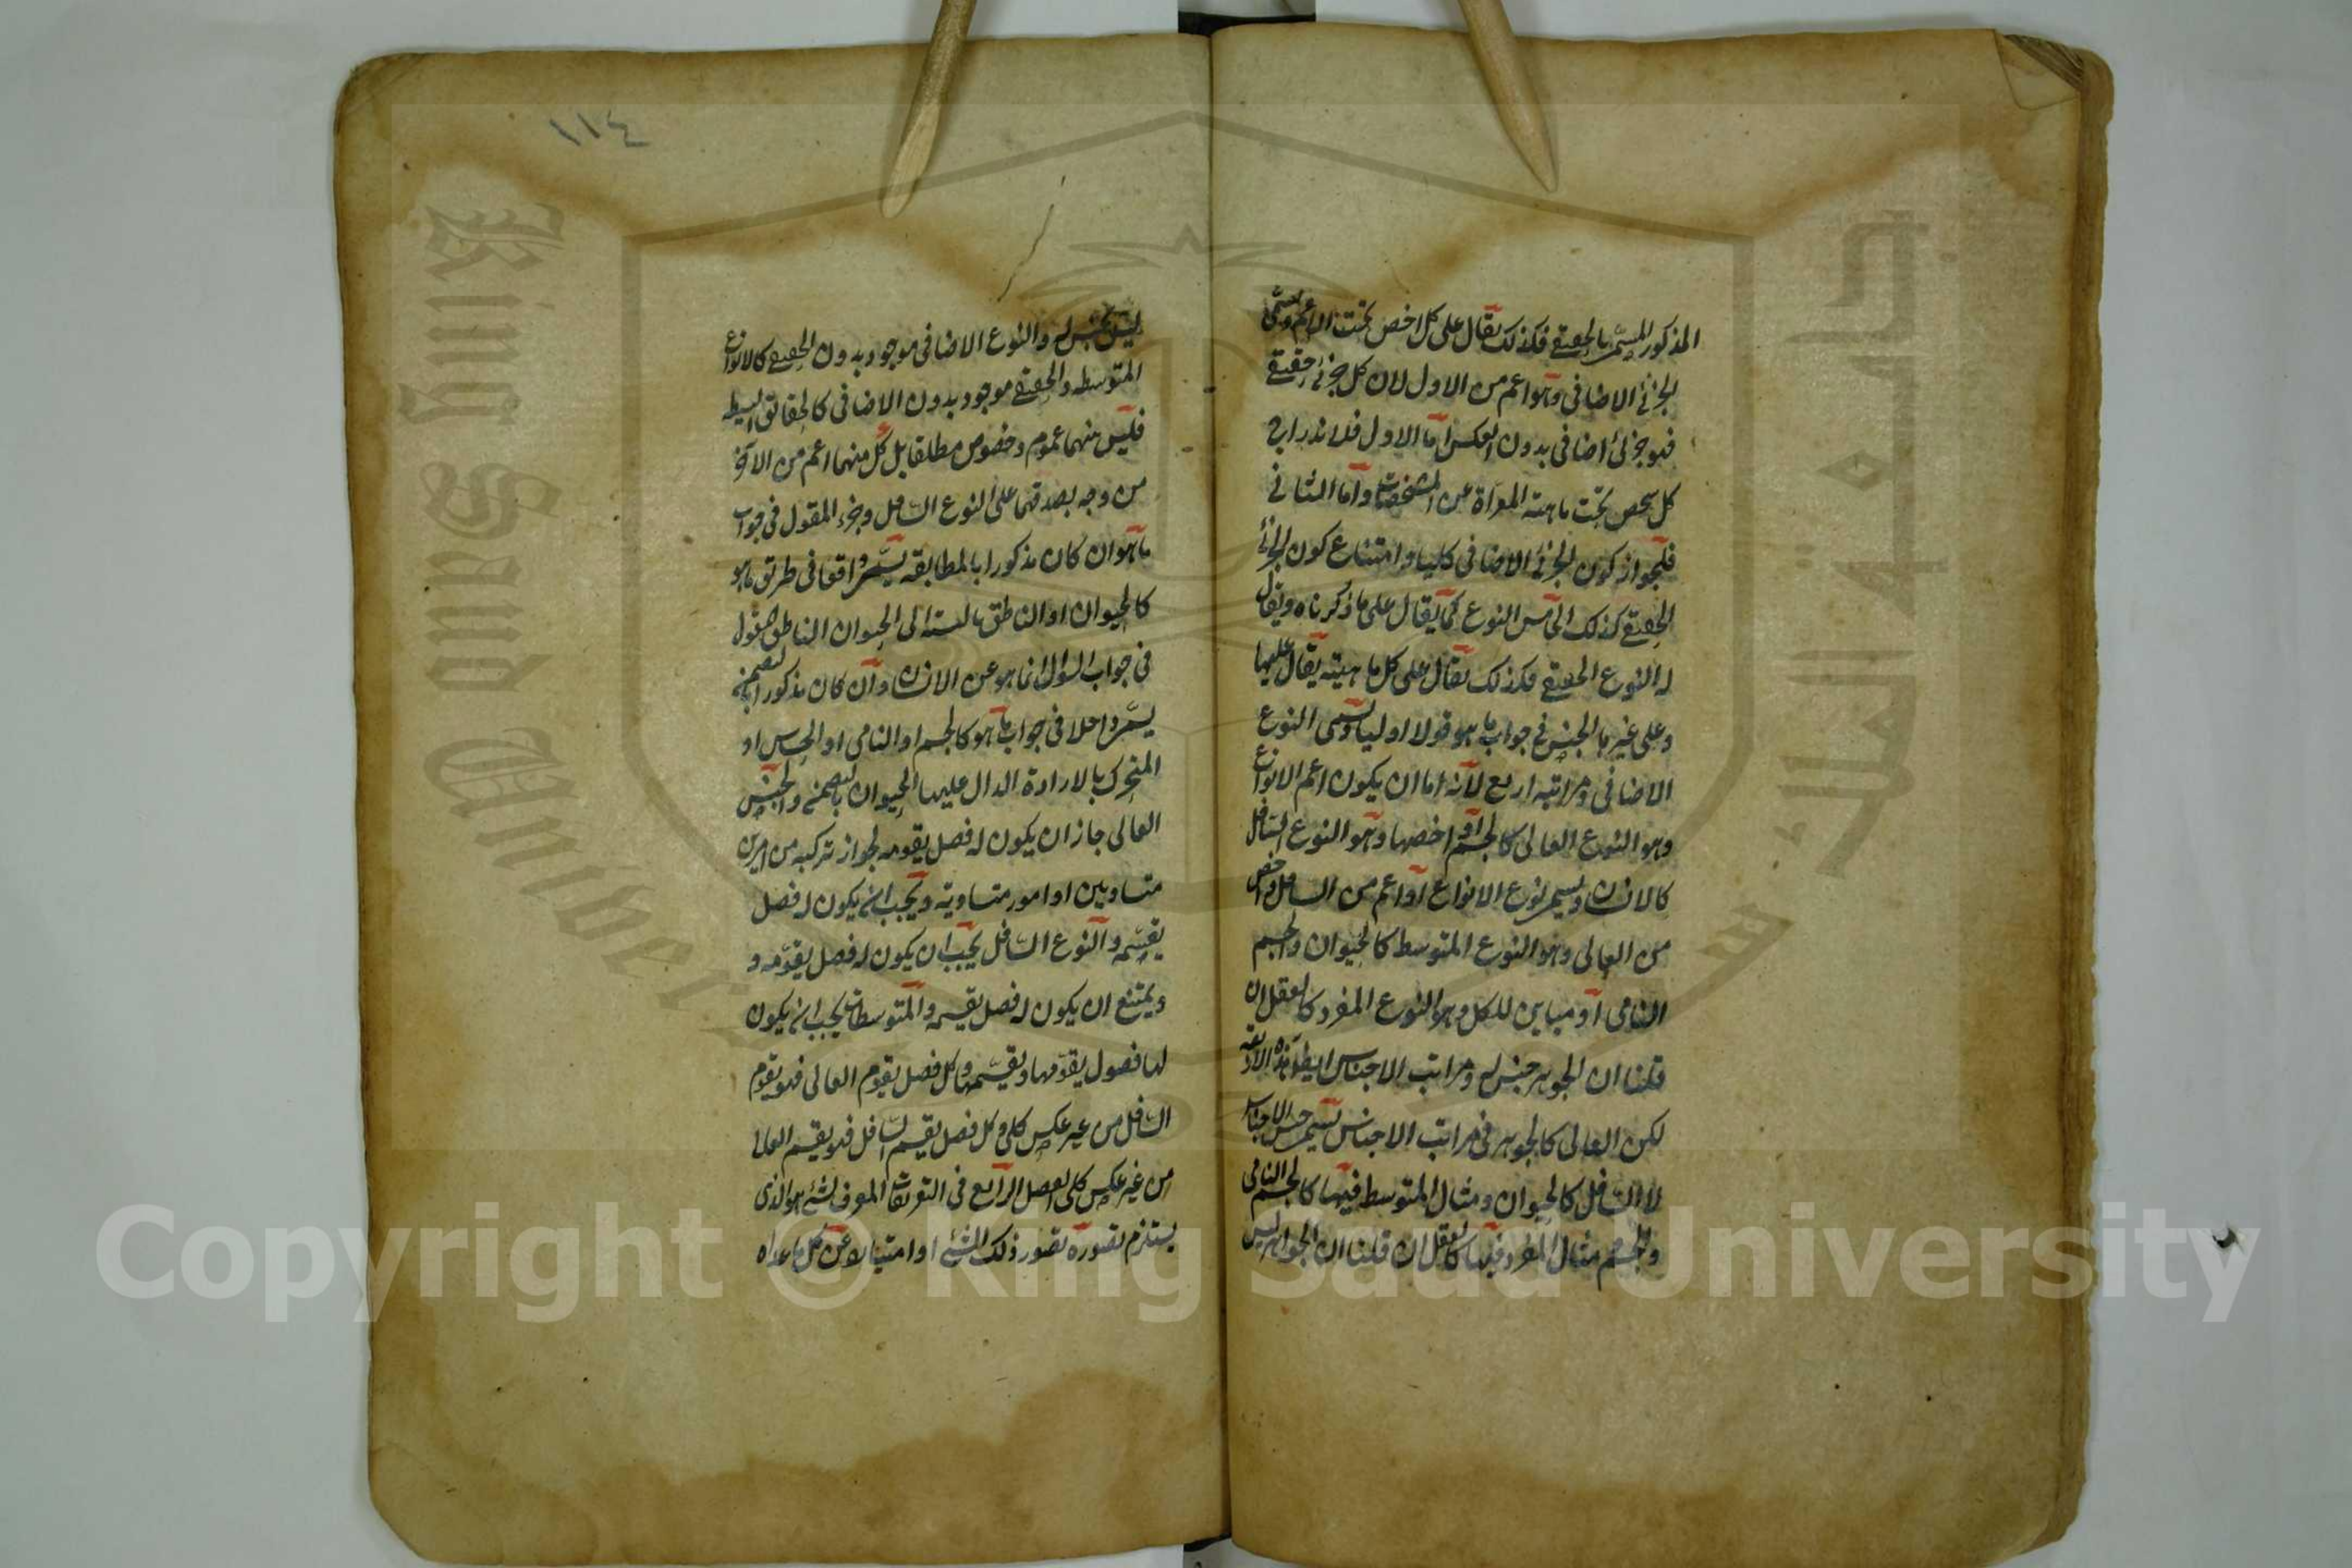 المذكور المسمى بالحقيقي فكذلك يقال على كل اخص تحت الاعم ويسمى
الجزئي الاضافي وهو اعم من الاول لان كل جزئي حقيقي
فهو جزئي اضافي بدون العكس اما الاول فلاندراج
كل شخص تحت ماهيته المعراة عن المشخصات واما الثاني
فلجواز كون الجزئي الاضافي كليا وامتناع كون الجزئي
الحقيقي كذلك الخامس النوع كما يقال على ما ذكرناه ويقال
له النوع الحقيقي فكذلك يقال على كل ماهية يقال عليها
وعلى غيرها الجنس في جواب ما هو قولا اوليا ويسمى النوع
الاضافي ومراتبه اربع لانه اما ان يكون اعم الانواع
وهو النوع العالي كالجسم او اخصها وهو النوع السافل
كالانسان ويسمى نوع الانواع او اعم من السافل واخص
من العالي وهو النوع المتوسط كالحيوان والجسم
النامي او مباين للكل وهو النوع المفرد كالعقل ان
قلنا ان الجوهر جنس له ومراتب الاجناس ايضا هذه الاربعة
لكن العالي كالجوهر في مراتب الاجناس يسمى جنس الاجناس
لا السافل كالحيوان ومثال المتوسط فيها كالجسم النامي
والجسم مثال المفرد فيها كالعقل ان قلنا ان الجوهر ليس
١١٤
ليس بجنس له والنوع الاضافي موجود بدون الحقيقي كالانواع
المتوسطه والحقيقي موجود بدون الاضافي كالحقائق البسيطه
فليس بينهما عموم وخصوص مطلقا بل كل منهما اعم من الآخر
من وجه بصدقهما على النوع السافل وجزء المقول في جواب
ما هو ان كان مذكورا بالمطابقه يسمى واقعا في طريق ما هو
كالحيوان او الناطق بالنسبة الى الحيوان الناطق المقول
في جواب السؤال انما هو عن الانسان وان كان مذكورا بالتضمن
يسمى داخلا في جواب ما هو كالجسم او النامي او الحساس او
المتحرك بالارادة الدال عليها الحيوان بالتضمن والجنس
العالي جاز ان يكون له فصل يقومه لجواز تركبه من امرين
متساويين او امور متساوية ويجب ان يكون له فصل
يقسمه والنوع السافل يجب ان يكون له فصل يقومه و
ويمتنع ان يكون له فصل يقسمه والمتوسطات يجب ان يكون
لها فصول يقومها ويقسمها وكل فصل يقوم العالي فهو يقوم
السافل من غير عكس كلي وكل فصل يقسم السافل فهو يقسم العالي
من غير عكس كلي الفصل الرابع في التعريفات المعرف لشئ هو الذي
يستلزم تصوره تصور ذلك الشئ او امتيازه عن كل ما عداه
Copyright © King Saud University
King Saud University